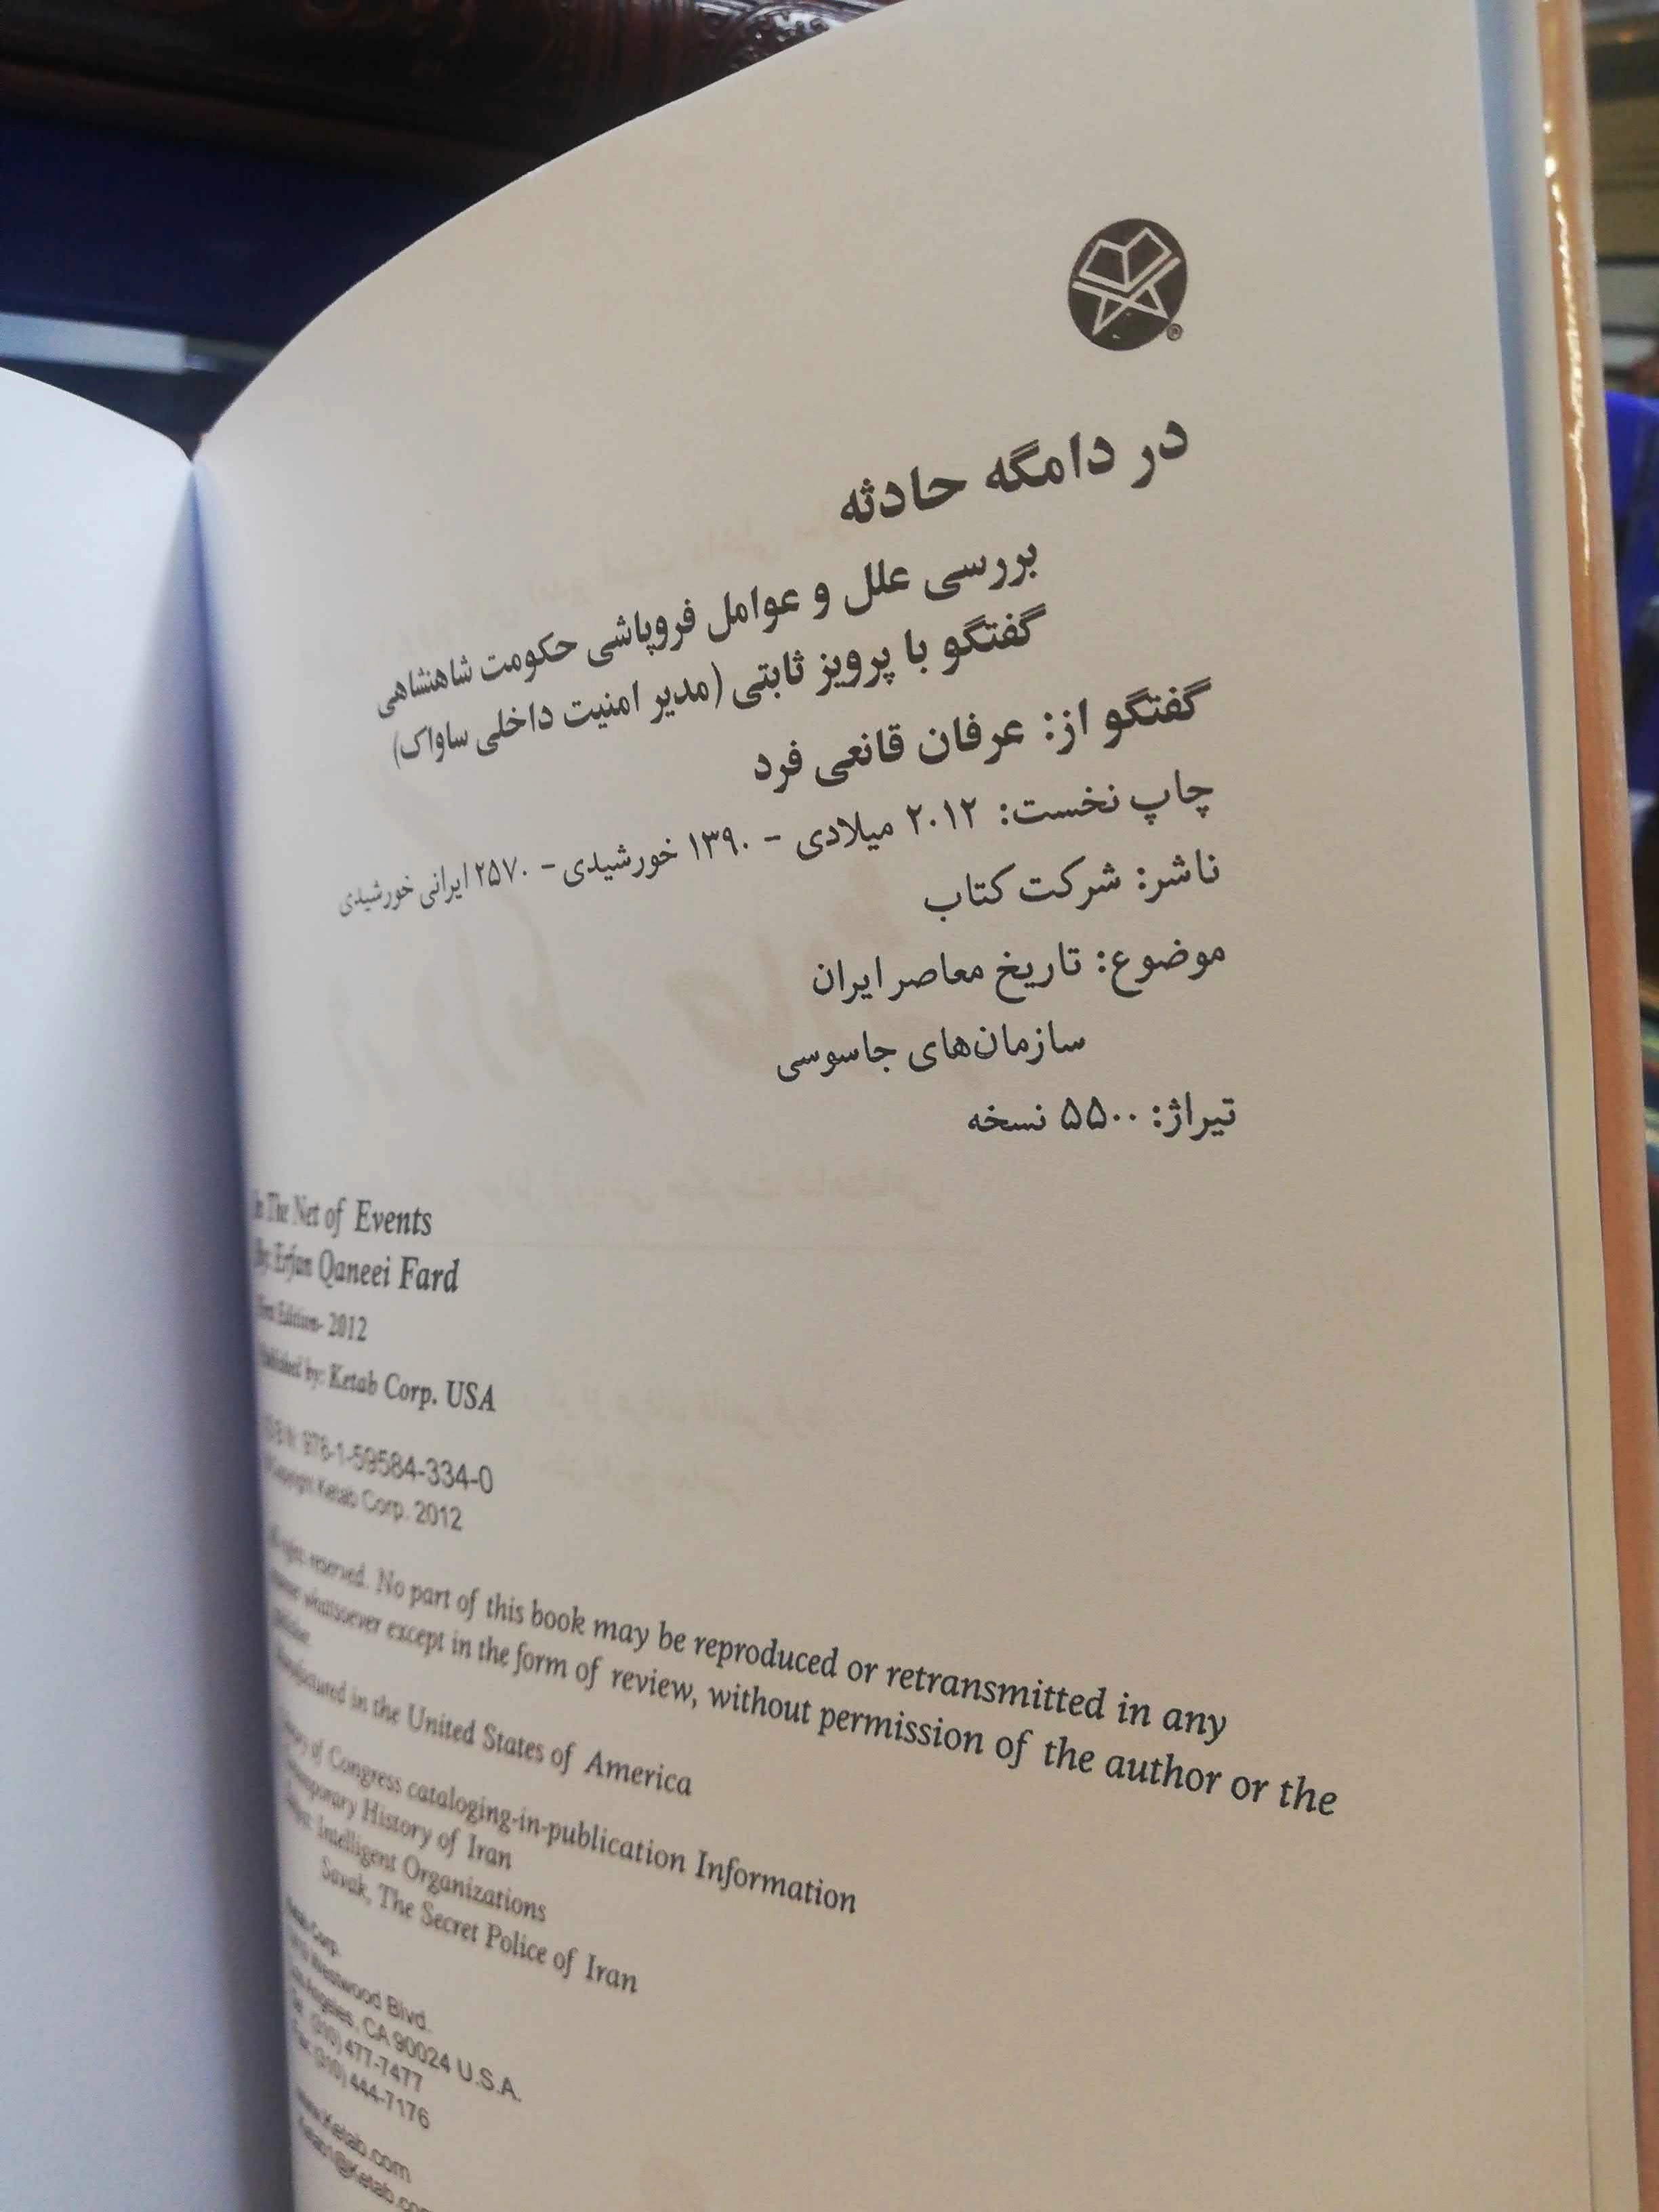 در دامگه حادثه
بررسی علل و عوامل فروپاشی حکومت شاهنشاهی
گفتگو با پرویز ثابتی (مدیر امنیت داخلی ساواک)
گفتگو از: عرفان قانعی فرد
چاپ نخست: ۲۰۱۲ میلادی - ۱۳۹۰ خورشیدی - ۲۵۷۰ ایرانی خورشیدی
ناشر: شرکت کتاب
موضوع: تاریخ معاصر ایران
سازمان‌های جاسوسی
تیراژ: ۵۵۰۰ نسخه
In The Net of Events
By: Erfan Qaneei Fard
First Edition- 2012
Published by: Ketab Corp. USA
ISBN: 978-1-59584-334-0
Copyright Ketab Corp. 2012
All rights reserved. No part of this book may be reproduced or retransmitted in any
whatsoever except in the form of review, without permission of the author or the
Manufactured in the United States of America
Library of Congress cataloging-in-publication Information
Contemporary History of Iran
Intelligent Organizations
Savak, The Secret Police of Iran
Ketab Corp.
Westwood Blvd.
Los Angeles, CA 90024 U.S.A.
Tel: (310) 477-7477
Fax: (310) 444-7176
www.Ketab.com